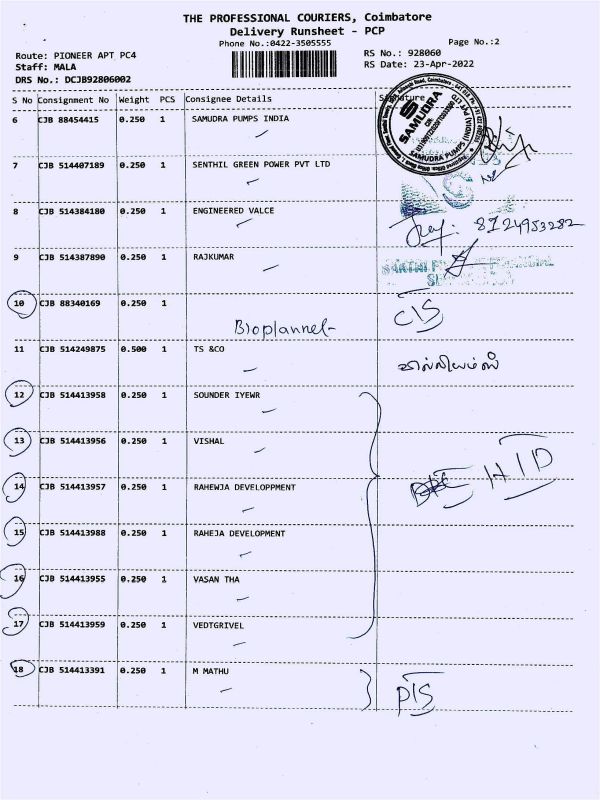 THE PROFESSIONAL COURIERS, Coimbatore
Delivery Runsheet - PCP
Phone No.:0422-3505555
Page No.:2
Route: PIONEER APT PC4
RS No.: 928060
Staff: MALA
RS Date: 23-Apr-2022
DRS No.: DCJB92806002
S No Consignment No Weight PCS Consignee Details Signature
6 CJB 88454415 0.250 1 SAMUDRA PUMPS INDIA
SAMUDRA
SAMUDRA PUMPS
7 CJB 514407189 0.250 1 SENTHIL GREEN POWER PVT LTD
8 CJB 514384180 0.250 1 ENGINEERED VALCE
8124953282
9 CJB 514387890 0.250 1 RAJKUMAR
10 CJB 88340169 0.250 1
Bioplannel CIS
11 CJB 514249875 0.500 1 TS &CO
12 CJB 514413958 0.250 1 SOUNDER IYEWR
13 CJB 514413956 0.250 1 VISHAL
14 CJB 514413957 0.250 1 RAHEWJA DEVELOPPMENT
HID
15 CJB 514413988 0.250 1 RAHEJA DEVELOPMENT
16 CJB 514413955 0.250 1 VASAN THA
17 CJB 514413959 0.250 1 VEDTGRIVEL
18 CJB 514413391 0.250 1 M MATHU
PIS